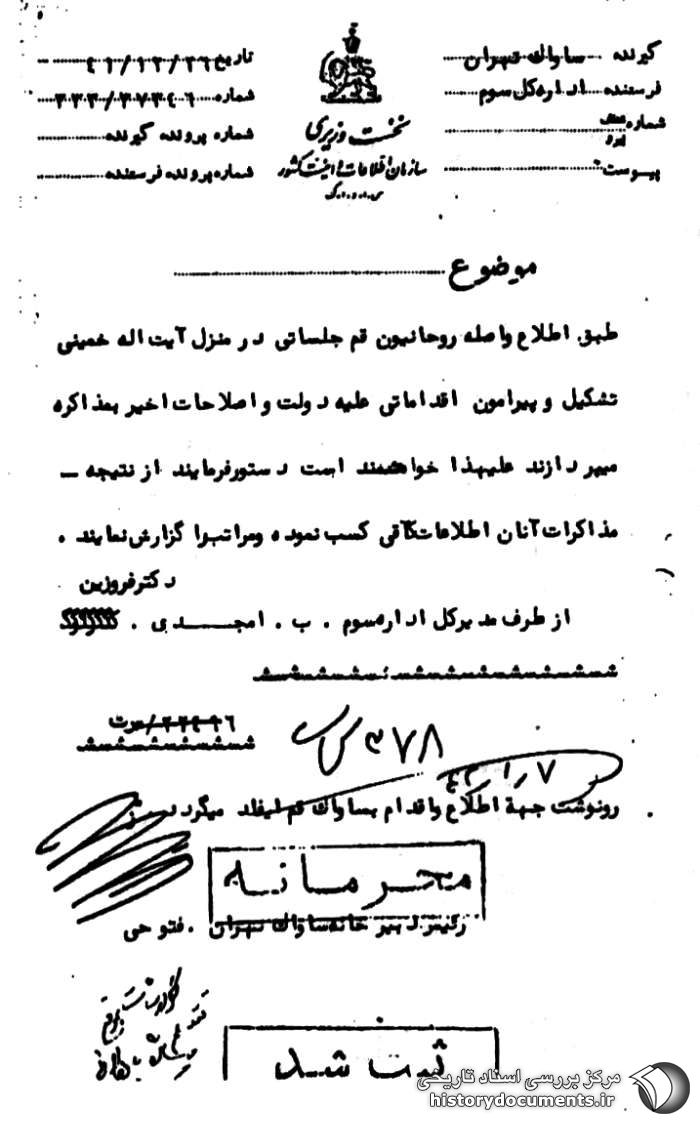 گیرنده ساواک تهران
فرستنده اداره کل سوم
شماره
پیوست
نخست وزیری
سازمان اطلاعات و امنیت کشور
س.ا.و.ا.ک
تاریخ ۴۱/۱۲/۲۶
شماره ۳۳۳/۳۷۳۴۶
شماره پرونده گیرنده
شماره پرونده فرستنده
موضوع
طبق اطلاع واصله روحانیون قم جلساتی در منزل آیت اله خمینی
تشکیل و پیرامون اقداماتی علیه دولت و اصلاحات اخیر بمذاکره
میپردازند علیهذا خواهشمند است دستورفرمایند از نتیجه –
مذاکرات آنان اطلاعات کافی کسب نموده ومراتبرا گزارش نمایند .
دکترفروزین
از طرف مدیرکل اداره سوم . ب . امجدی .
۳۷۸
۷ر۱ر۴۲
رونوشت جهة اطلاع واقدام بساواک قم ایفلد میگردد
محرمانه
رئیس دبیرخانه ساواک تهران . فتوحی
ثبت شد
مرکز بررسی اسناد تاریخی
historydocuments.ir